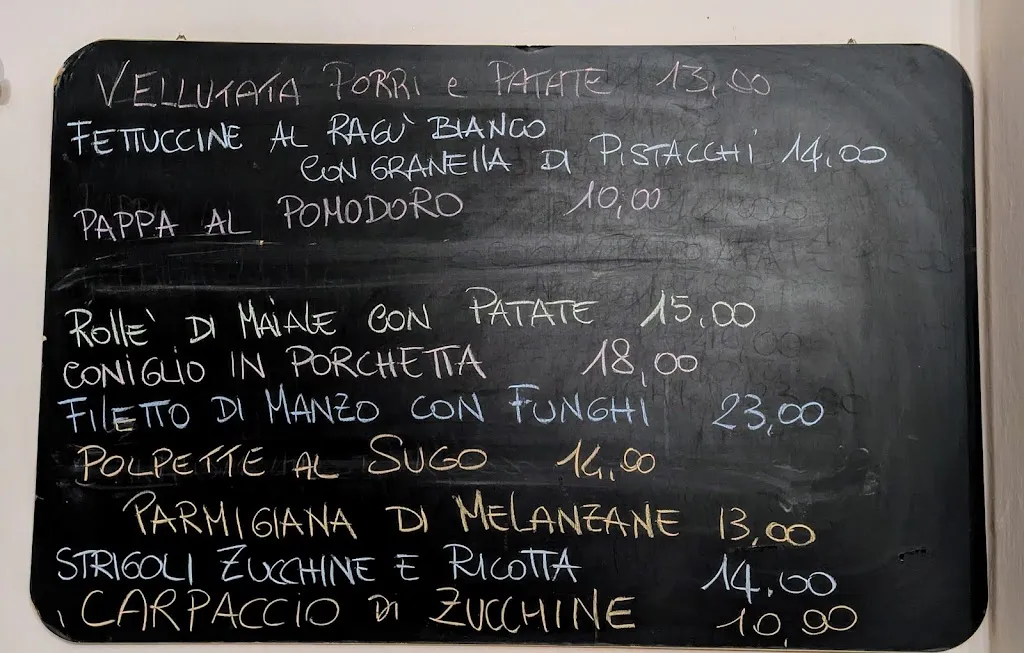 VELLUTATA PORRI e PATATE 13,00
FETTUCCINE AL RAGU' BIANCO
CON GRANELLA DI PISTACCHI 14,00
PAPPA AL POMODORO 10,00
ROLLE' DI MAIALE CON PATATE 15,00
CONIGLIO IN PORCHETTA 18,00
FILETTO DI MANZO CON FUNGHI 23,00
POLPETTE AL SUGO 14,00
PARMIGIANA DI MELANZANE 13,00
STRIGOLI ZUCCHINE E RICOTTA 14.00
CARPACCIO DI ZUCCHINE 10,00